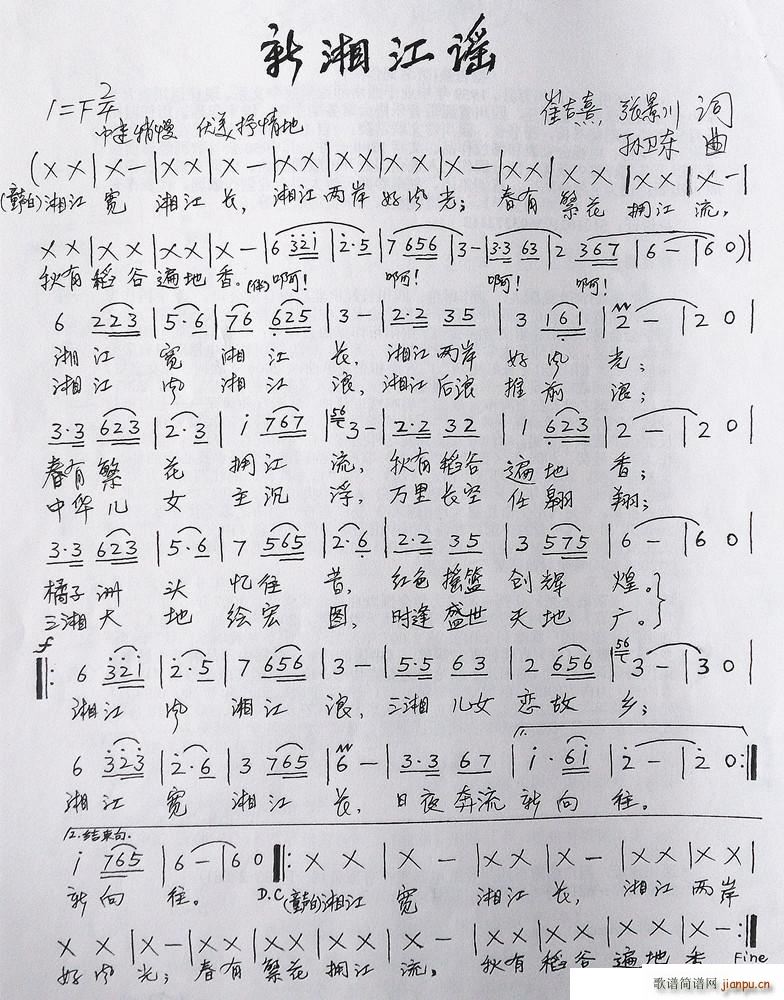 新湘江谣
1=F 2/4
中速稍慢 优美抒情地
崔吉熹、张景川 词
孙卫东 曲
(X X|X -|X X|X -|X X|X X|X X|X -|X X|X X|X X|X -|
(童白)湘江 宽 湘江 长, 湘江 两岸 好风 光; 春有 繁花 拥江 流,
X X|X X|X X|X -|6 321|2·5|7 656|3 -|3·3 63|2 367|6 -|6 0)|
秋有 稻谷 遍地 香。(伴)啊! 啊! 啊! 啊!
6 223|5·6|76 625|3 -|2·2 35|3 161|2 -|2 0|
湘 江 宽 湘 江 长, 湘江 两岸 好 风 光;
湘 江 风 湘 江 浪, 湘江 后浪 推 前 浪;
3·3 623|2·3|i 767|56 3 -|2·2 32|1 623|2 -|2 0|
春有 繁 花 拥 江 流, 秋有 稻谷 遍 地 香;
中华 儿 女 主 沉 浮, 万里 长空 任 翱 翔;
3·3 623|5·6|7 565|2·6|2·2 35|3 575|6 -|6 0|
橘子 洲 头 忆 往 昔, 红色 摇篮 创 辉 煌。}
三湘 大 地 绘 宏 图, 时逢 盛世 天 地 广。}
f
‖: 6 321|2·5|7 656|3 -|5·5 63|2 656|56 3 -|3 0|
湘 江 风 湘 江 浪, 三湘 儿女 恋 故 乡;
6 323|2·6|3 765|6 -|3·3 67|1. i·6i|2 -|2 0:‖
湘 江 宽 湘 江 长, 日夜 奔流 新 向 往。
2.结束句.
i 765|6 -|6 0‖: X X|X -|X X|X -|X X|X X|
新 向 往。 D.C (童白)湘江 宽 湘江 长, 湘江 两岸
X X|X -|X X|X X|X X|X -|X X|X X|X X|X -:‖
好风 光; 春有 繁花 拥江 流, 秋有 稻谷 遍地 香 Fine
歌谱简谱网
jianpu.cn